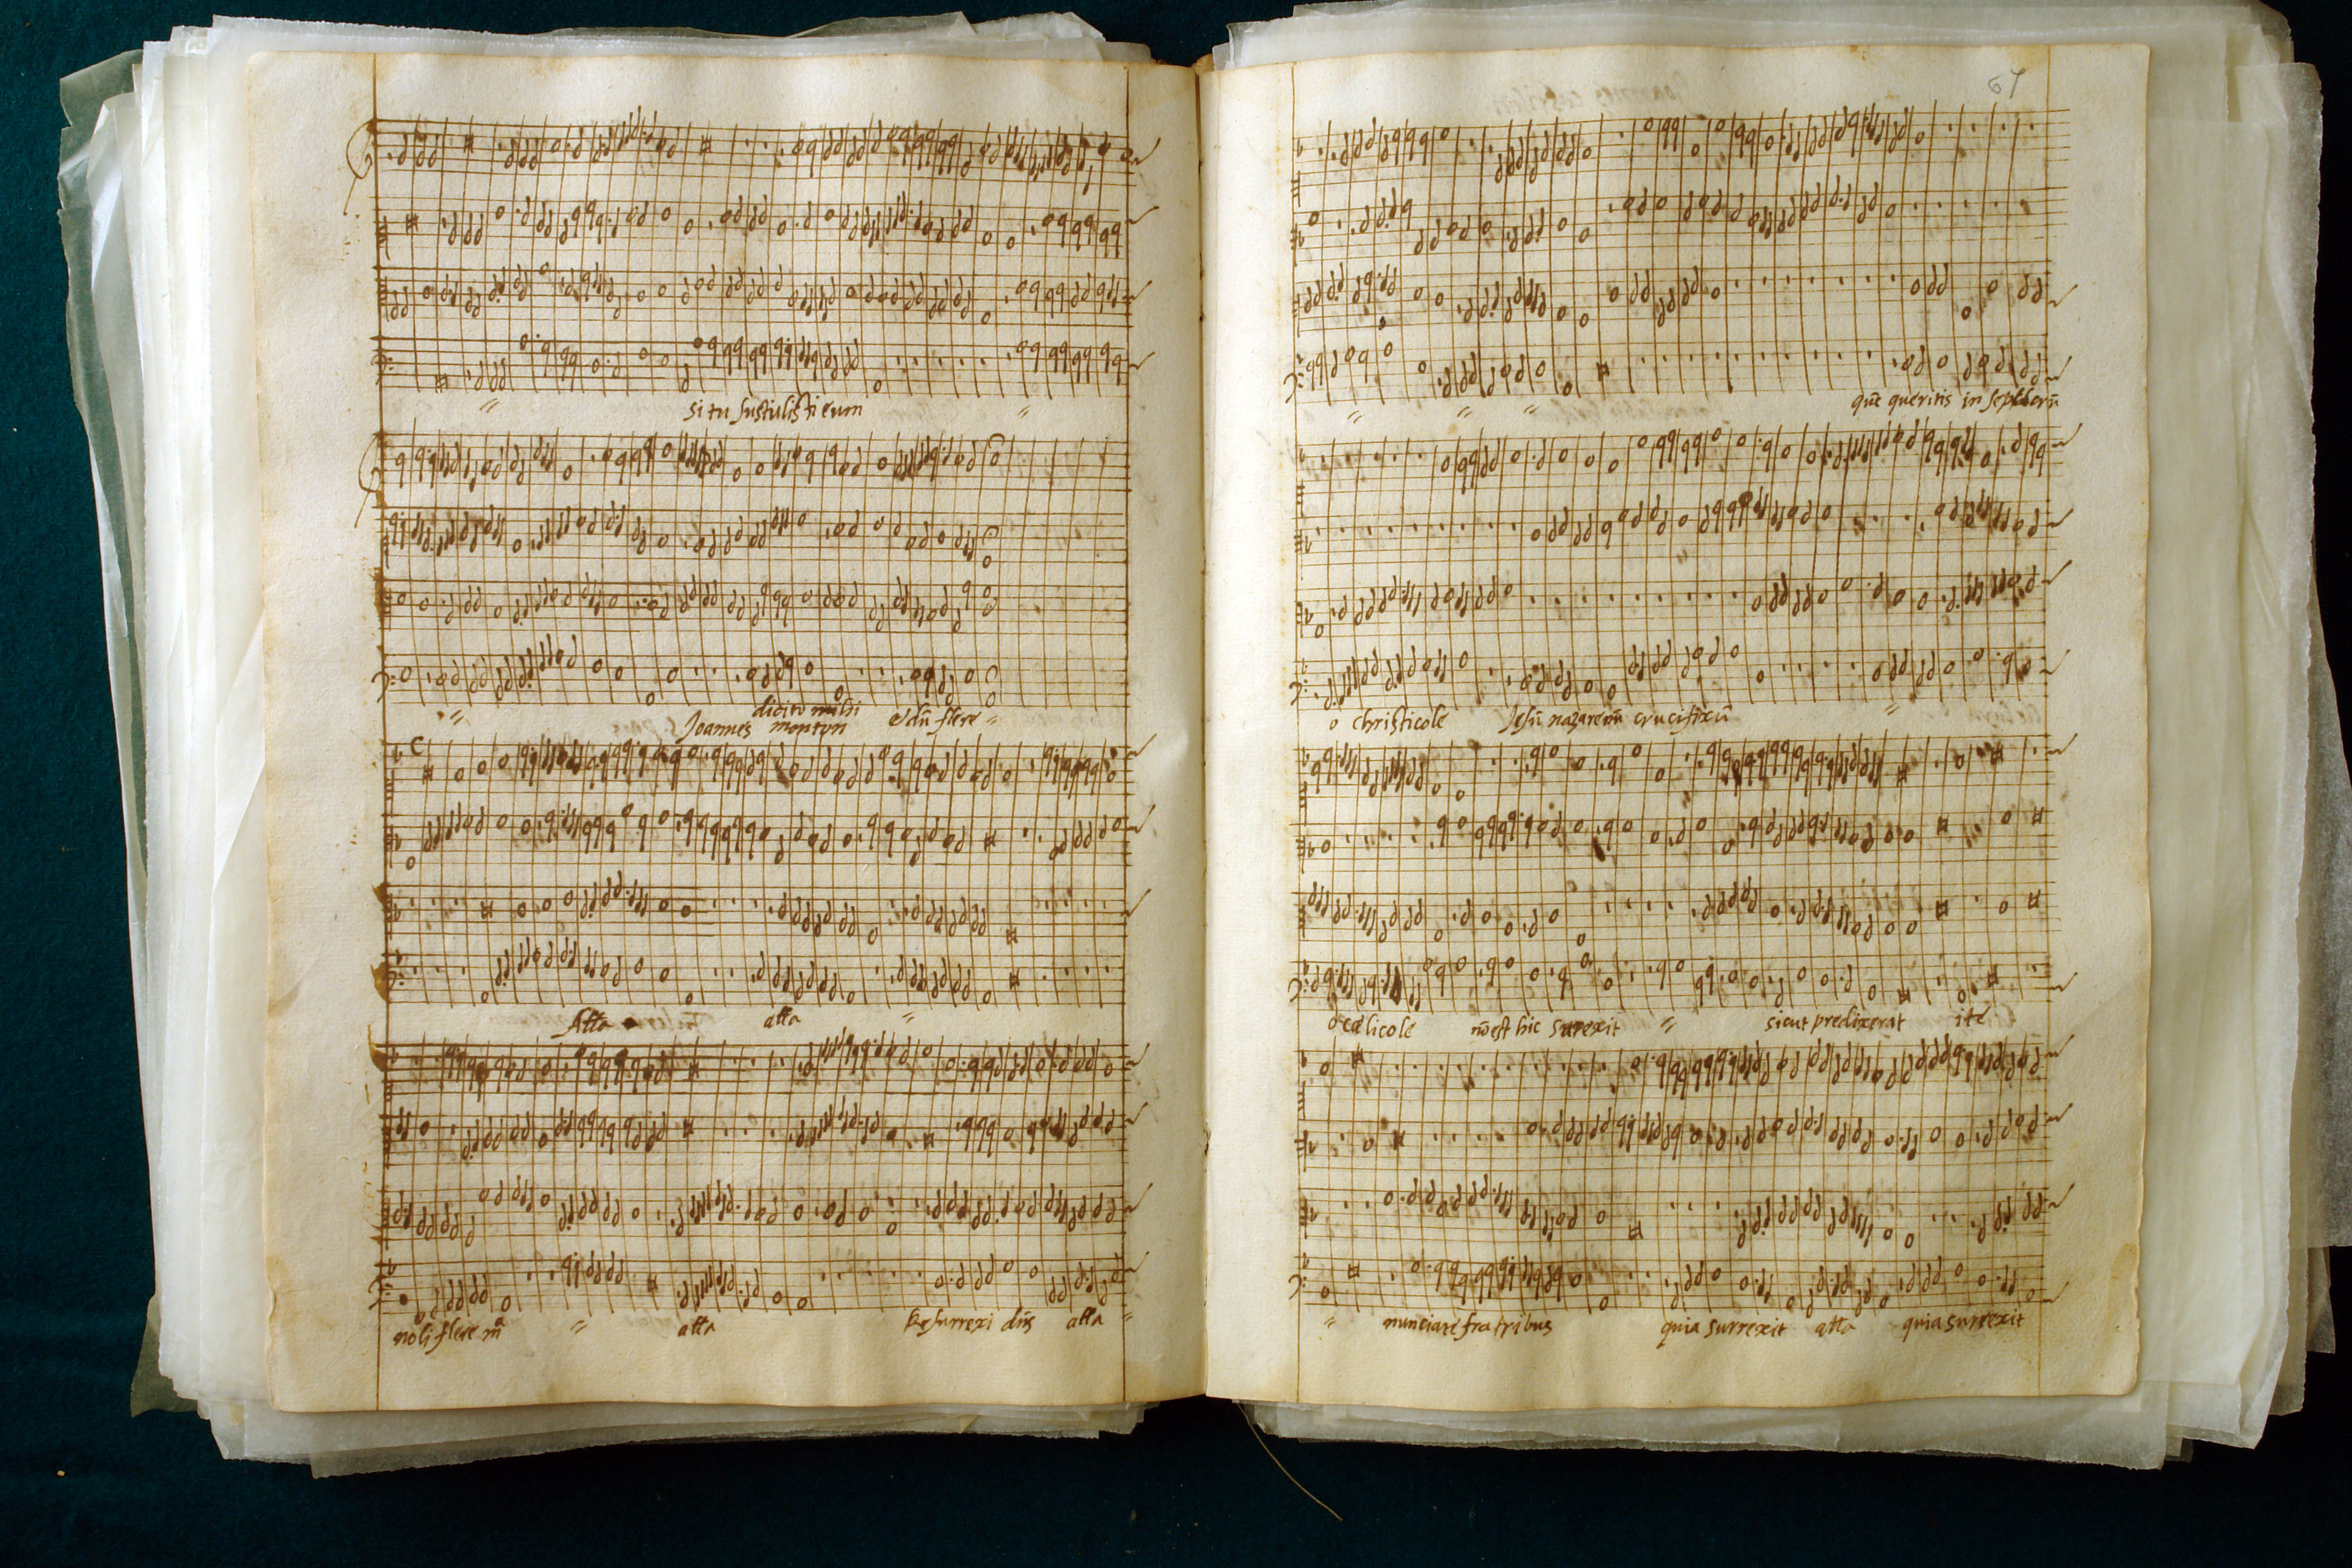 si tu sustulisti eum
dicito mihi
Joannes monton
Alla alla
noli flere m̃a alla Resurrexi dñs alla
67
quẽ queritis in sepulcrũ
o christicole Jesũ nazarenũ crucifixũ
o celicole nõ est hic surexit sicut predixerat ite
nunciate fratribus quia surrexit alla quia surrexit